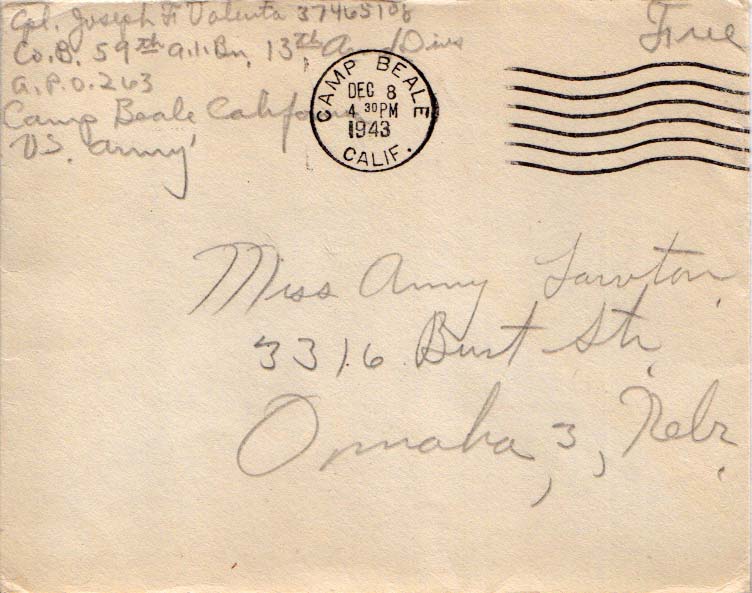 Cpl. Joseph F. Valenta 37465108
Co. B. 59th a.i. Bn, 13th Div
a.P.O. 263
Camp Beale California
U.S. army
Free
CAMP BEALE
DEC 8
4 30 PM
1943
CALIF.
Miss Amy Lawton
3316 Burt Str.
Omaha, 3, Nebr.